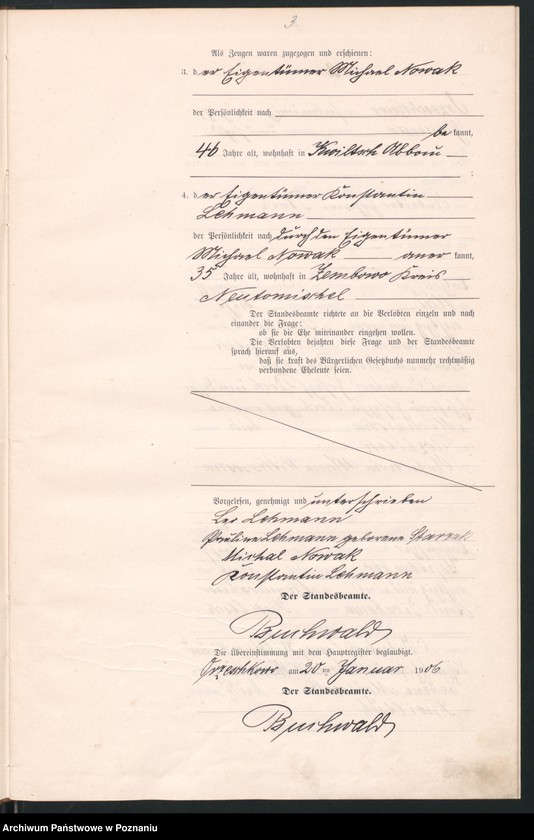 3
Als Zeugen waren zugezogen und erschienen:
3. der Eigentümer Michael Nowak
der Persönlichkeit nach
be kannt,
46 Jahre alt, wohnhaft in Kwiltsch Abbau
;
4. der Eigentümer Konstantin
Lehmann
der Persönlichkeit nach durch den Eigentümer
Michael Nowak aner kannt,
35 Jahre alt, wohnhaft in Zembowo Kreis
Neutomischel
Der Standesbeamte richtete an die Verlobten einzeln und nach
einander die Frage:
ob sie die Ehe miteinander eingehen wollen.
Die Verlobten bejahten diese Frage und der Standesbeamte
sprach hierauf aus,
daß sie kraft des Bürgerlichen Gesetzbuchs nunmehr rechtmäßig
verbundene Eheleute seien.
Vorgelesen, genehmigt und unterschrieben
Leo Lehmann
Pauline Lehmann geborene
Michal Nowak
Konstantin Lehmann
Der Standesbeamte.
Buchwald
Die Übereinstimmung mit dem Hauptregister beglaubigt.
Orzeschkowo am 20 ten Januar 1906
Der Standesbeamte.
Buchwald
Archiwum Państwowe w Poznaniu